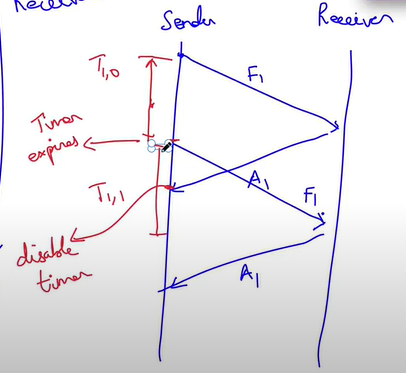 Receiver
Sender
Receiver
T1,0
F1
Timer
expires
A1
F1
T1,1
disable
timer
A1